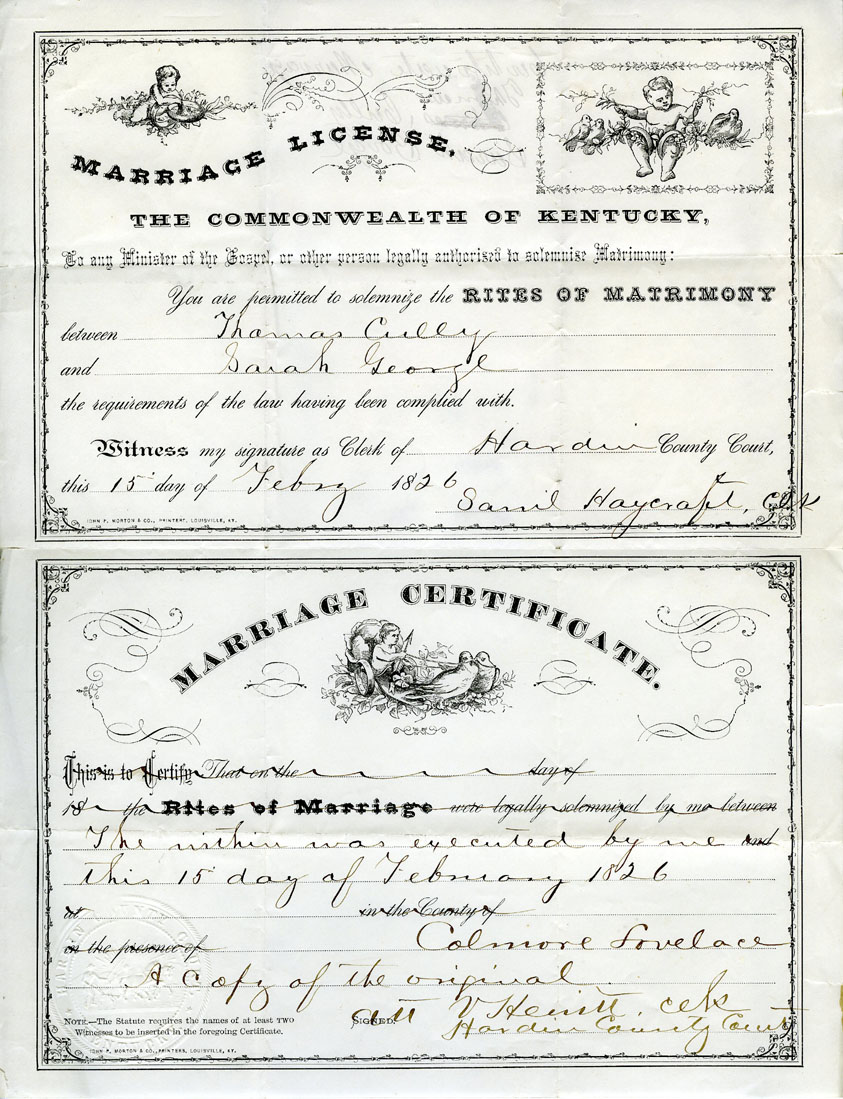 MARRIAGE LICENSE,
THE COMMONWEALTH OF KENTUCKY,
To any Minister of the Gospel, or other person legally authorised to solemnise Matrimony:
You are permitted to solemnize the RITES OF MATRIMONY
between Thomas Cully
and Sarah George
the requirements of the law having been complied with.
Witness my signature as Clerk of Hardin County Court,
this 15 day of Febry 1826
Saml Haycraft, Clk
JOHN P. MORTON & CO., PRINTERS, LOUISVILLE, KY.
MARRIAGE CERTIFICATE.
This is to Certify That on the day of
18 the Rites of Marriage were legally solemnized by me between
The within was executed by me and
this 15 day of February 1826
at in the County of
in the presence of Colmore Lovelace
A Copy of the original
Att V Hewitt, clk
SIGNED,
Hardin County Court
NOTE.—The Statute requires the names of at least TWO
Witnesses to be inserted in the foregoing Certificate.
JOHN P. MORTON & CO., PRINTERS, LOUISVILLE, KY.